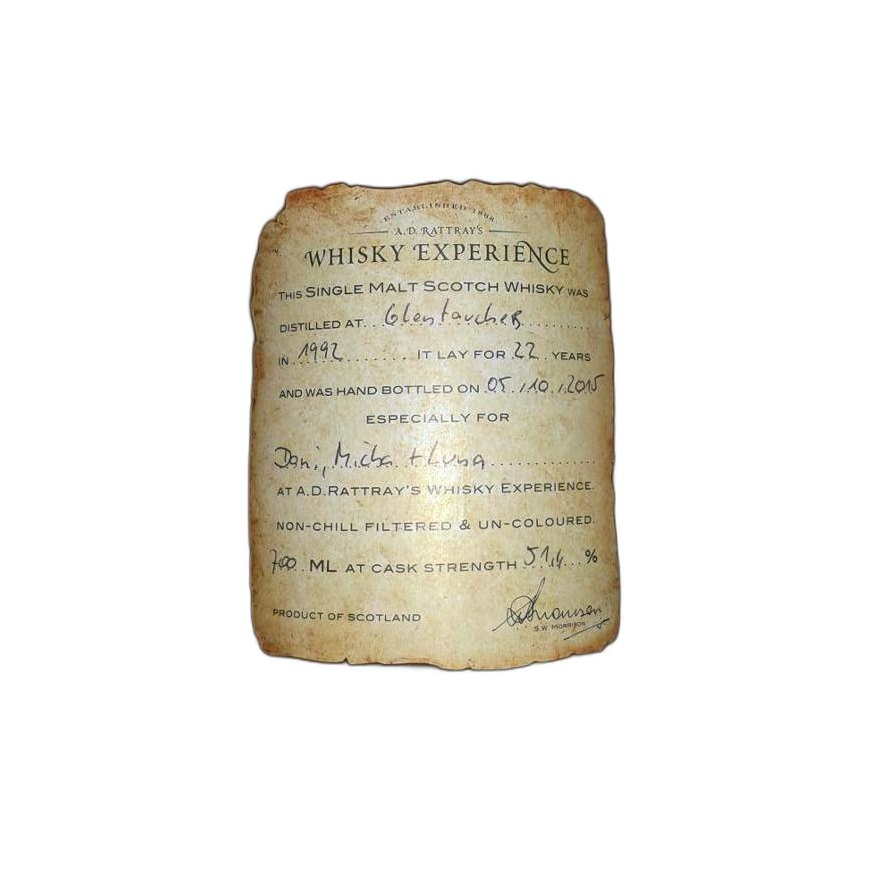 ESTABLISHED 1868
A.D. RATTRAY'S
WHISKY EXPERIENCE
THIS SINGLE MALT SCOTCH WHISKY WAS
DISTILLED AT...Glentauchers..........
IN..1992..........IT LAY FOR 22..YEARS
AND WAS HAND BOTTLED ON 05./10./2015
ESPECIALLY FOR
Dani, Micha + Luna..............
AT A.D.RATTRAY'S WHISKY EXPERIENCE.
NON-CHILL FILTERED & UN-COLOURED.
700..ML AT CASK STRENGTH 51,4...%
PRODUCT OF SCOTLAND
S.W MORRISON